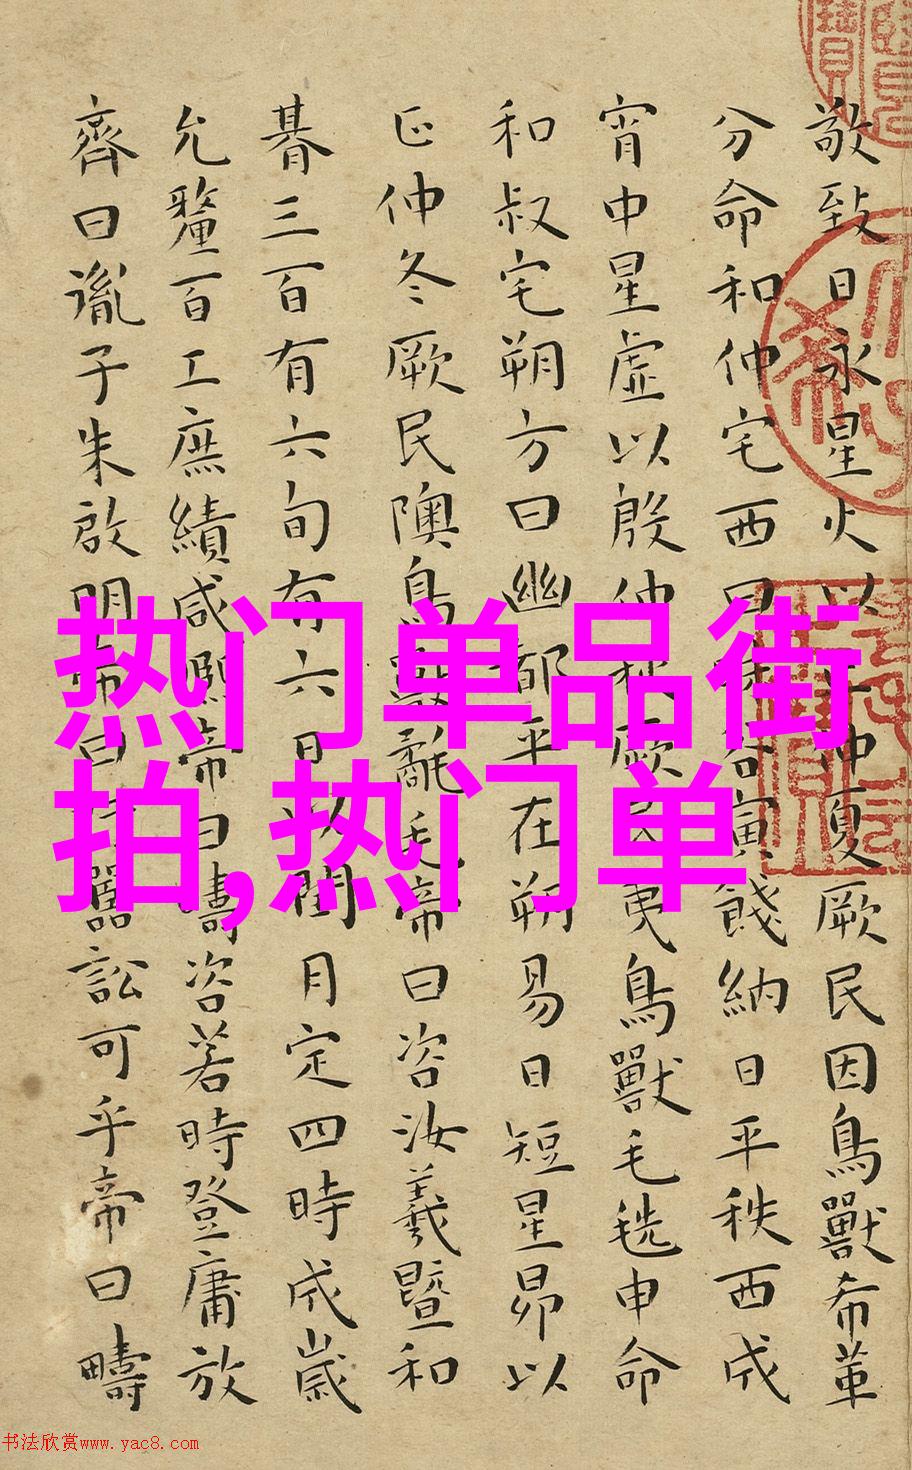 敬致日永星火以正仲夏厥民因鳥獸希革
分命和仲宅西曰昧谷寅餞納日平秩西成
宵中星虛以殷仲秋厥民夷鳥獸毛毨申命
和叔宅朔方曰幽都平在朔易日短星昴以
正仲冬厥民隩鳥獸氄毛帝曰咨汝羲暨和
朞三百有六旬有六日以閏月定四時成歲
允釐百工庶績咸熙帝曰疇咨若時登庸放
齊曰胤子朱啟明帝曰吁嚚訟可乎帝曰疇
热门单品街
拍,热门单
书法欣赏www.yac8.com